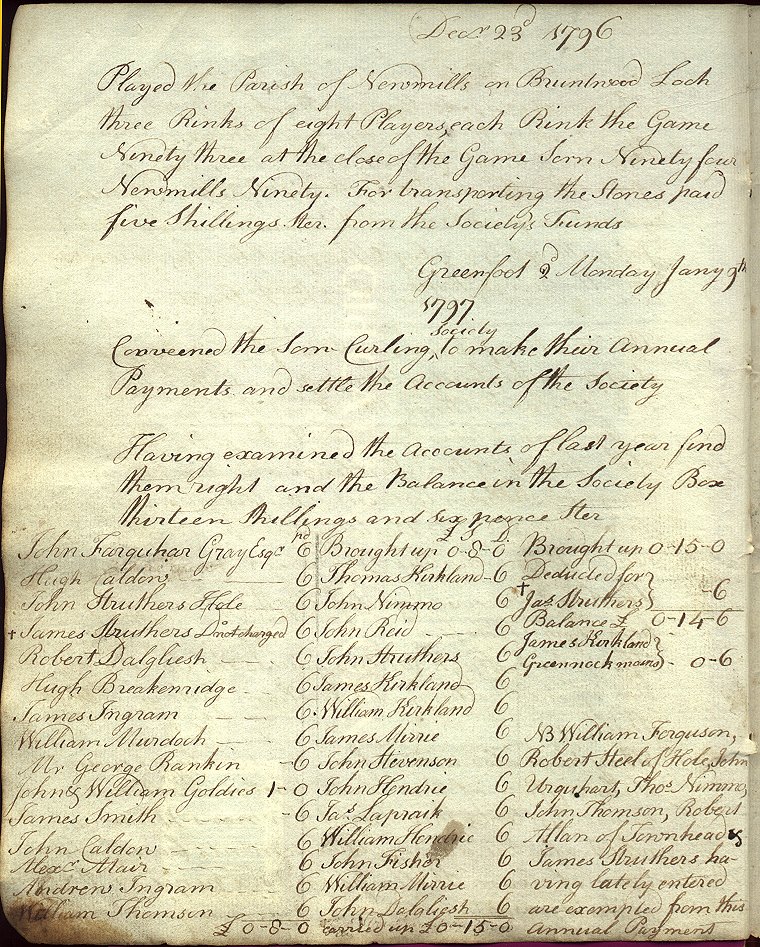 Decr. 23d 1796
Played the Parish of Newmills on Bruntwood Loch
three Rinks of eight Players each Rink the Game
Ninety three at the close of the Game Sorn Ninety four
Newmills Ninety. For transporting the Stones paid
five Shillings Ster. from the Society's Funds
Greenfoot Monday Jany 9th
1797
Conveened the Sorn Curling Society to make their Annual
Payments and settle the Accounts of the Society
Having examined the Accounts of last year find
them right and the Balance in the Society Box
thirteen Shillings and six pence Ster
John Farquhar Gray Esqr. 6
Hugh Caldow 6
John Struthers Hole 6
+ James Struthers Do. not charged 6
Robert Dalgliesh 6
Hugh Breakenridge 6
James Ingram 6
William Murdoch 6
Mr George Rankin 6
John & William Goldies 1-0
James Smith 6
John Caldow 6
Alexr. Mair 6
Andrew Ingram 6
William Thomson 6
£0-8-0
Brought up 0-8-0
Thomas Kirkland 6
John Nimmo 6
John Reid 6
John Struthers 6
James Kirkland 6
William Kirkland 6
James Mirrie 6
John Stevenson 6
John Hendrie 6
Jas. Lapraik 6
William Hendrie 6
John Fisher 6
William Mirrie 6
John Dalgliesh 6
carried up £0-15-0
Brought up 0-15-0
Deducted for
+ Jas. Struthers -6
Balance £ 0-14-6
James Kirkland
Greennockmains 0-6
NB William Ferguson,
Robert Steel of Hole, John
Urquhart, Thos. Nimmo,
John Thomson, Robert
Allan of Townhead &
James Struthers ha-
ving lately entered
are exempted from this
Annual Payment